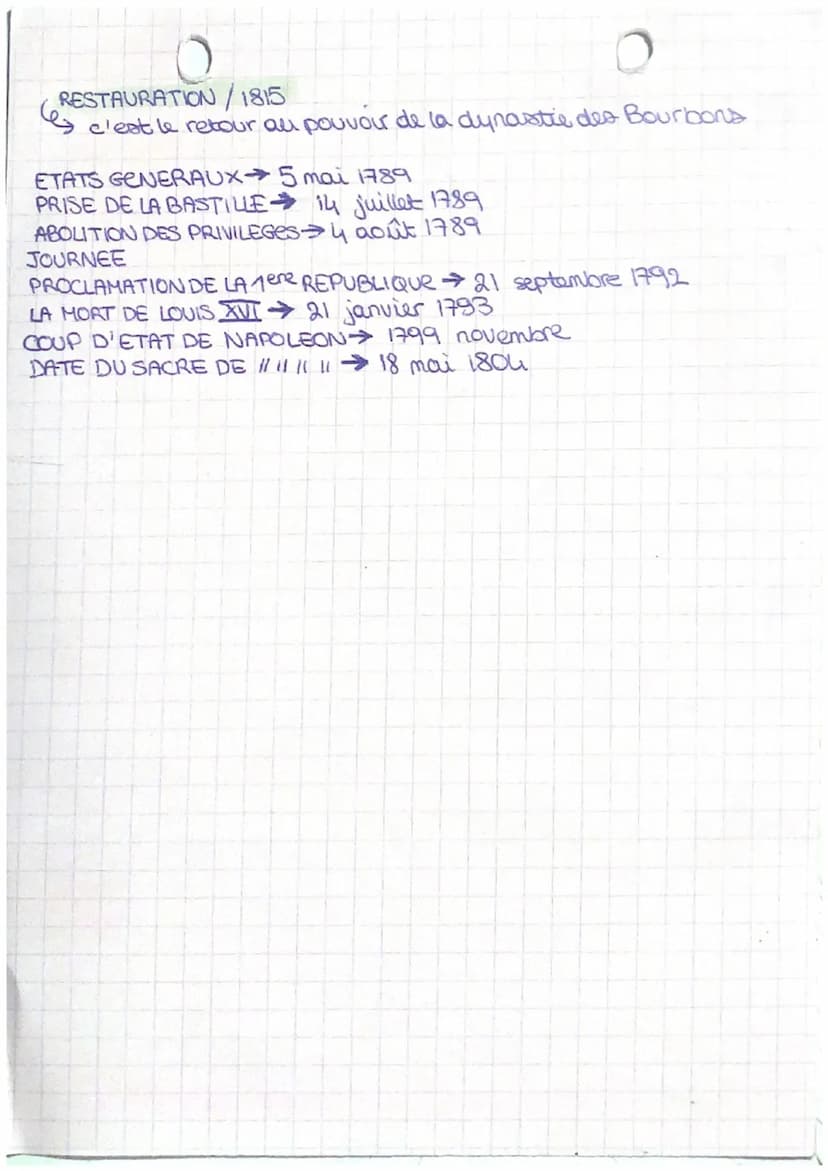 RESTAURATION / 1815
↳ c'est le retour au pouvoir de la dynastie des Bourbons
ETATS GENERAUX → 5 mai 1789
PRISE DE LA BASTILLE → 14 juillet 1789
ABOLITION DES PRIVILEGES → 4 août 1789
JOURNEE
PROCLAMATION DE LA 1ERE REPUBLIQUE → 21 septembre 1792
LA MORT DE LOUIS XVI → 21 janvier 1793
COUP D'ETAT DE NAPOLEON → 1799 novembre
DATE DU SACRE DE // // // // → 18 mai 1804